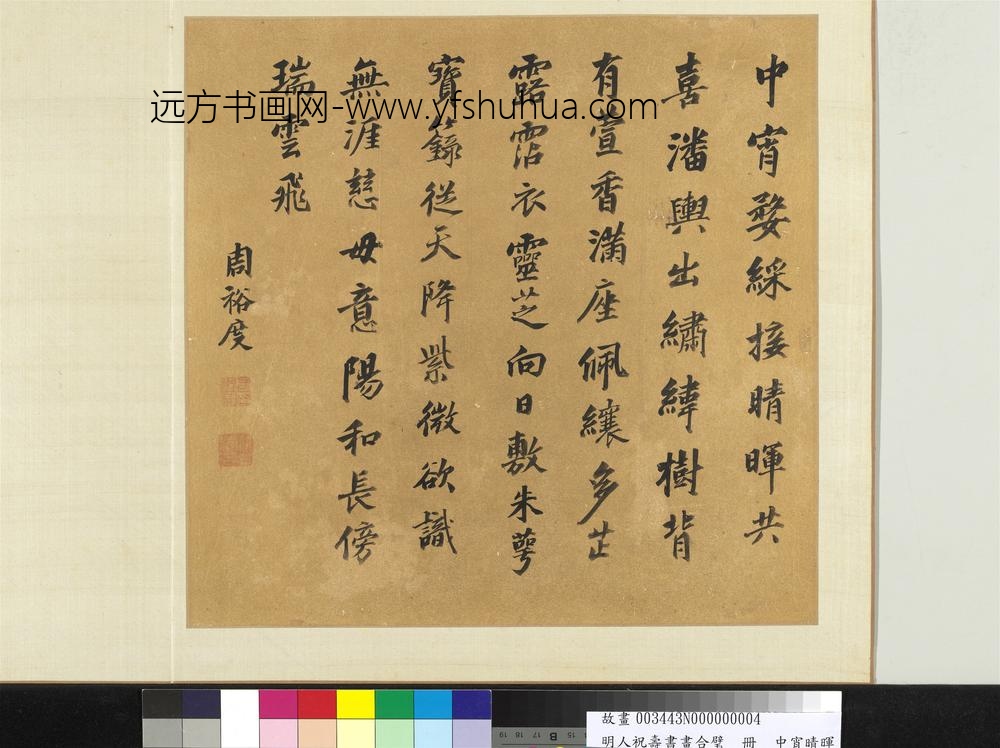 中宵婺綵接晴暉共
喜潘輿出繡幃樹背
有萱香滿座佩纕多芷
露霑衣靈芝向日敷朱萼
寶籙從天降紫微欲識
無涯慈母意陽和長傍
瑞雲飛
周裕度
远方书画网-www.yfshuhua.com
故畫 003443N000000004
明人祝壽書畫合璧 冊 中宵晴暉